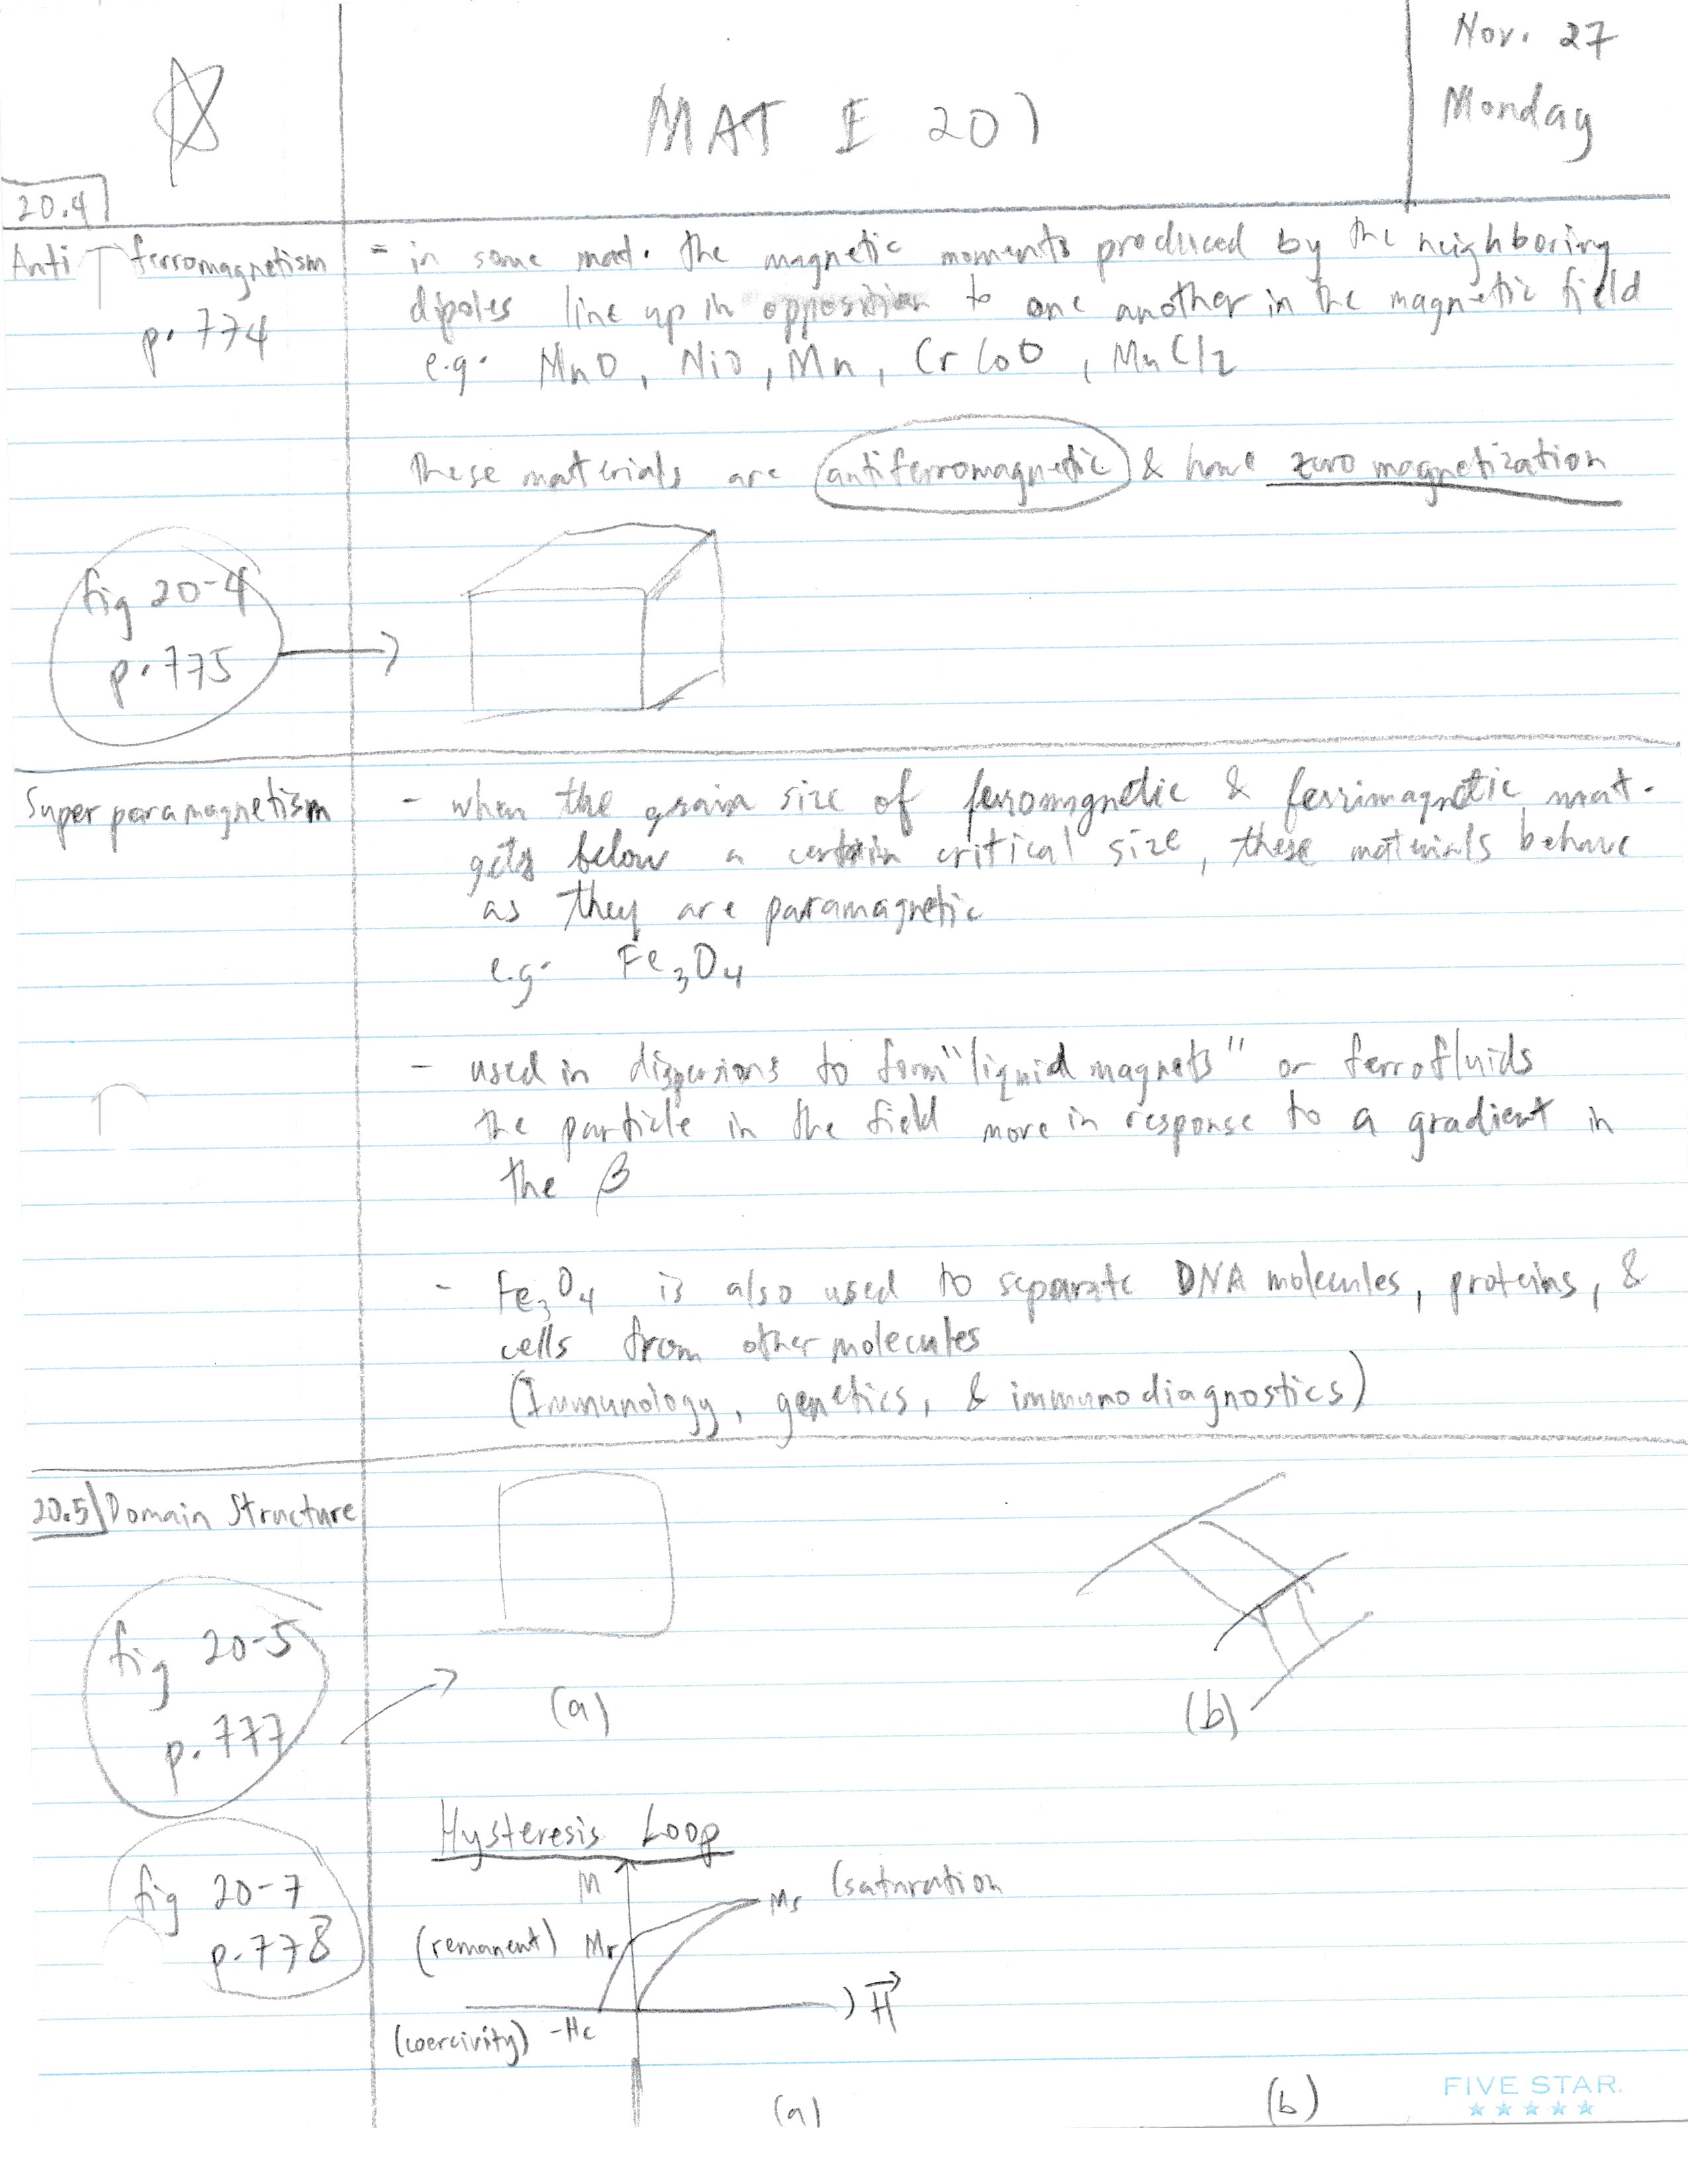 Nov. 27
Monday
MAT E 201
20.4
Anti ferromagnetism
p. 774
= in some mat. the magnetic moments produced by the neighboring
dipoles line up in opposition to one another in the magnetic field
e.g. MnO, NiO, Mn, Cr CoO, MnCl2
These materials are antiferromagnetic & have zero magnetization
fig 20-4
p. 775
Super paramagnetism
- when the grain size of ferromgnetic & ferrimagnetic mat.
gets below a certain critical size, these materials behave
as they are paramagnetic
e.g. Fe3O4
- used in dispersions to form "liquid magnets" or ferrofluids
the particle in the field move in response to a gradient in
the β
- Fe3O4 is also used to separate DNA molecules, proteins, &
cells from other molecules
(Immunology, genetics, & immunodiagnostics)
20.5 Domain Structure
fig 20-5
p. 777
(a)
(b)
Hysteresis Loop
fig 20-7
p. 778
M
Ms (saturation
(remanent) Mr
H
(coercivity) -Hc
(a)
(b)
FIVE STAR.